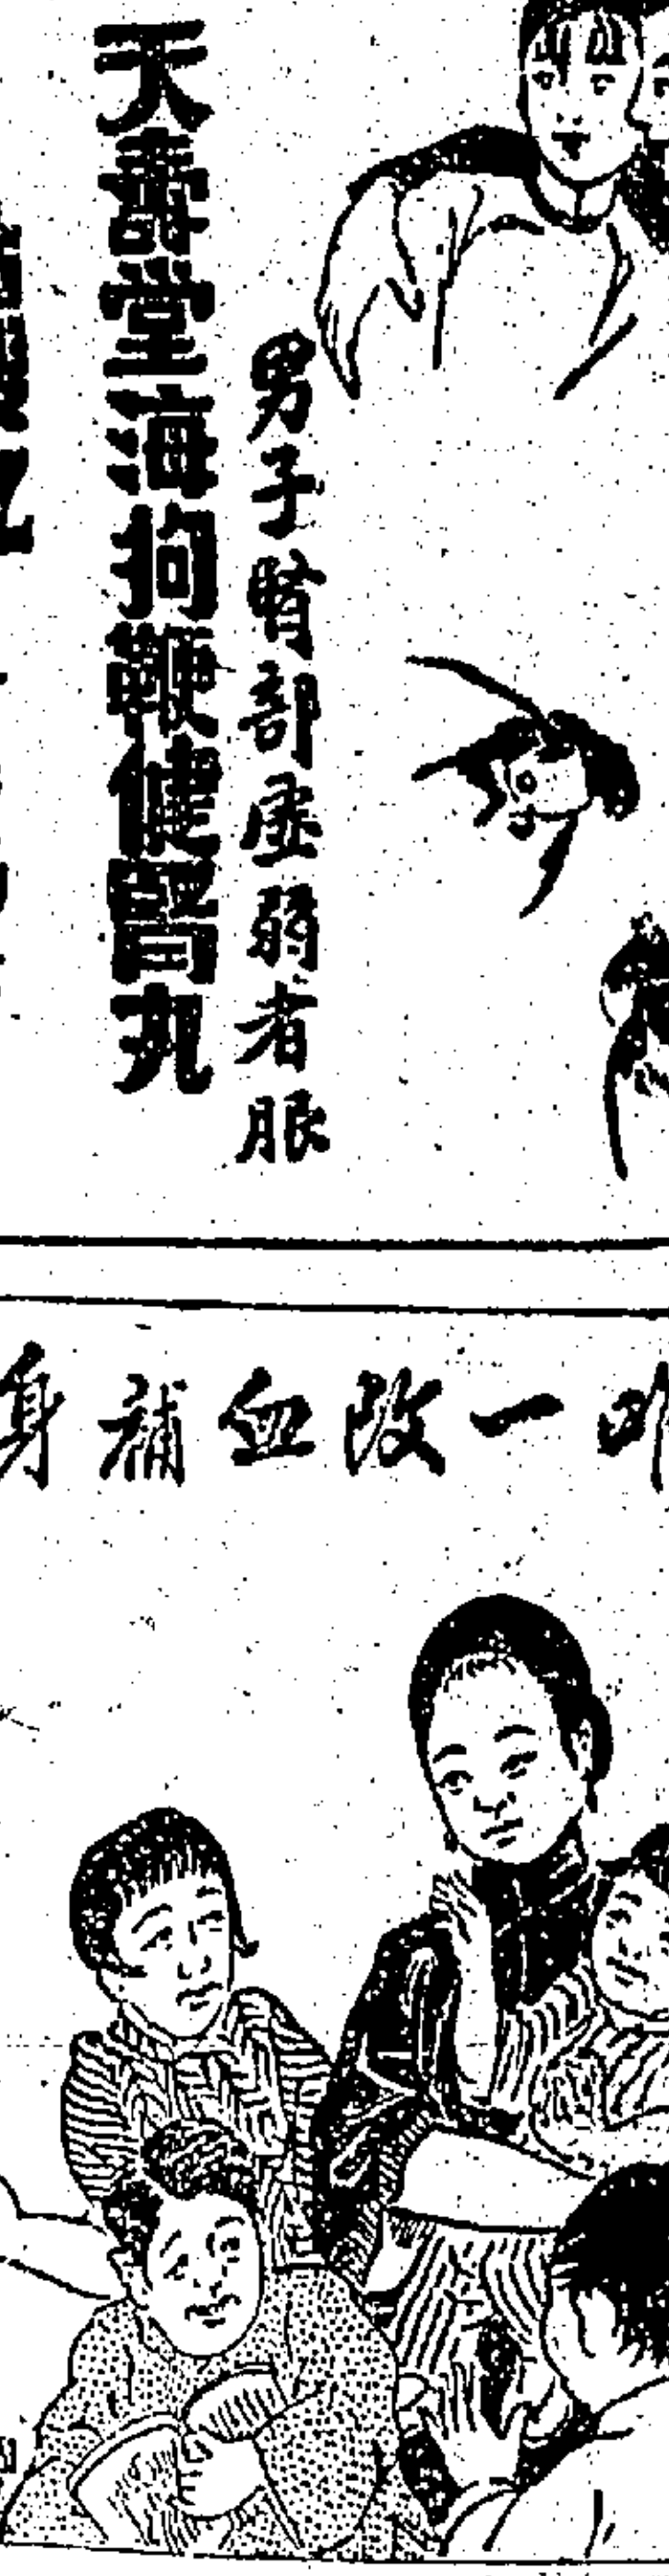 男子腎部虛弱者服
天壽堂海狗鞭健腎丸
一改血補身